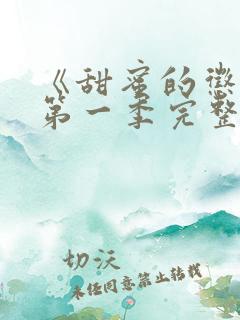 《甜蜜的惩
第一季完整
切沃
未经同意禁止转载